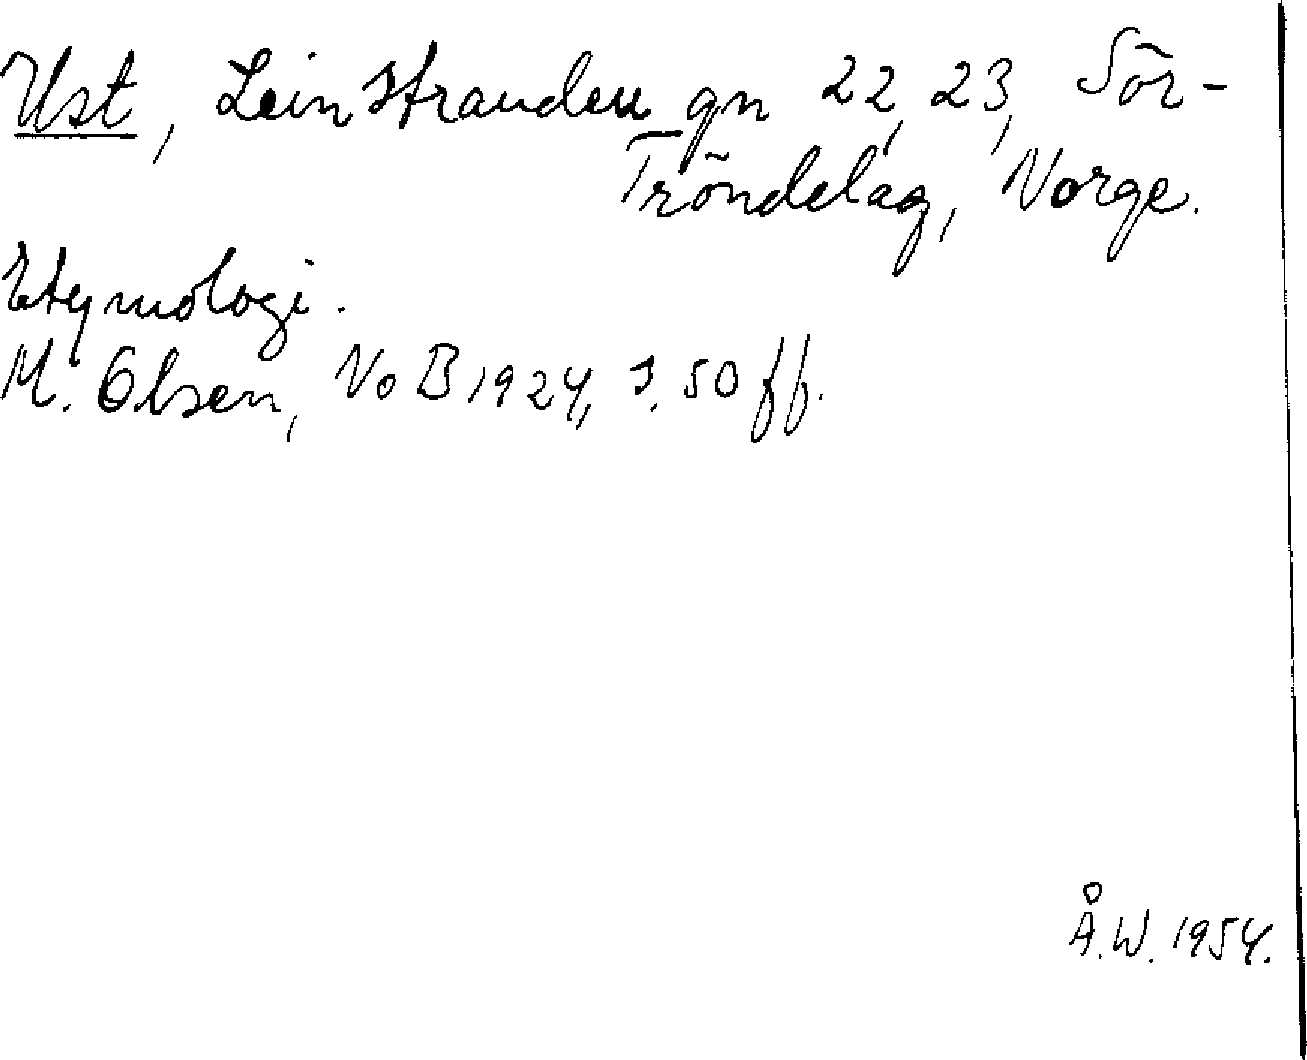 Ust, Leinstranden gn 22, 23, Sör-
Tröndelag, Norge.
Etymologi.
M. Olsen, NoB 1924, s. 50 ff.
Å.W. 1954.